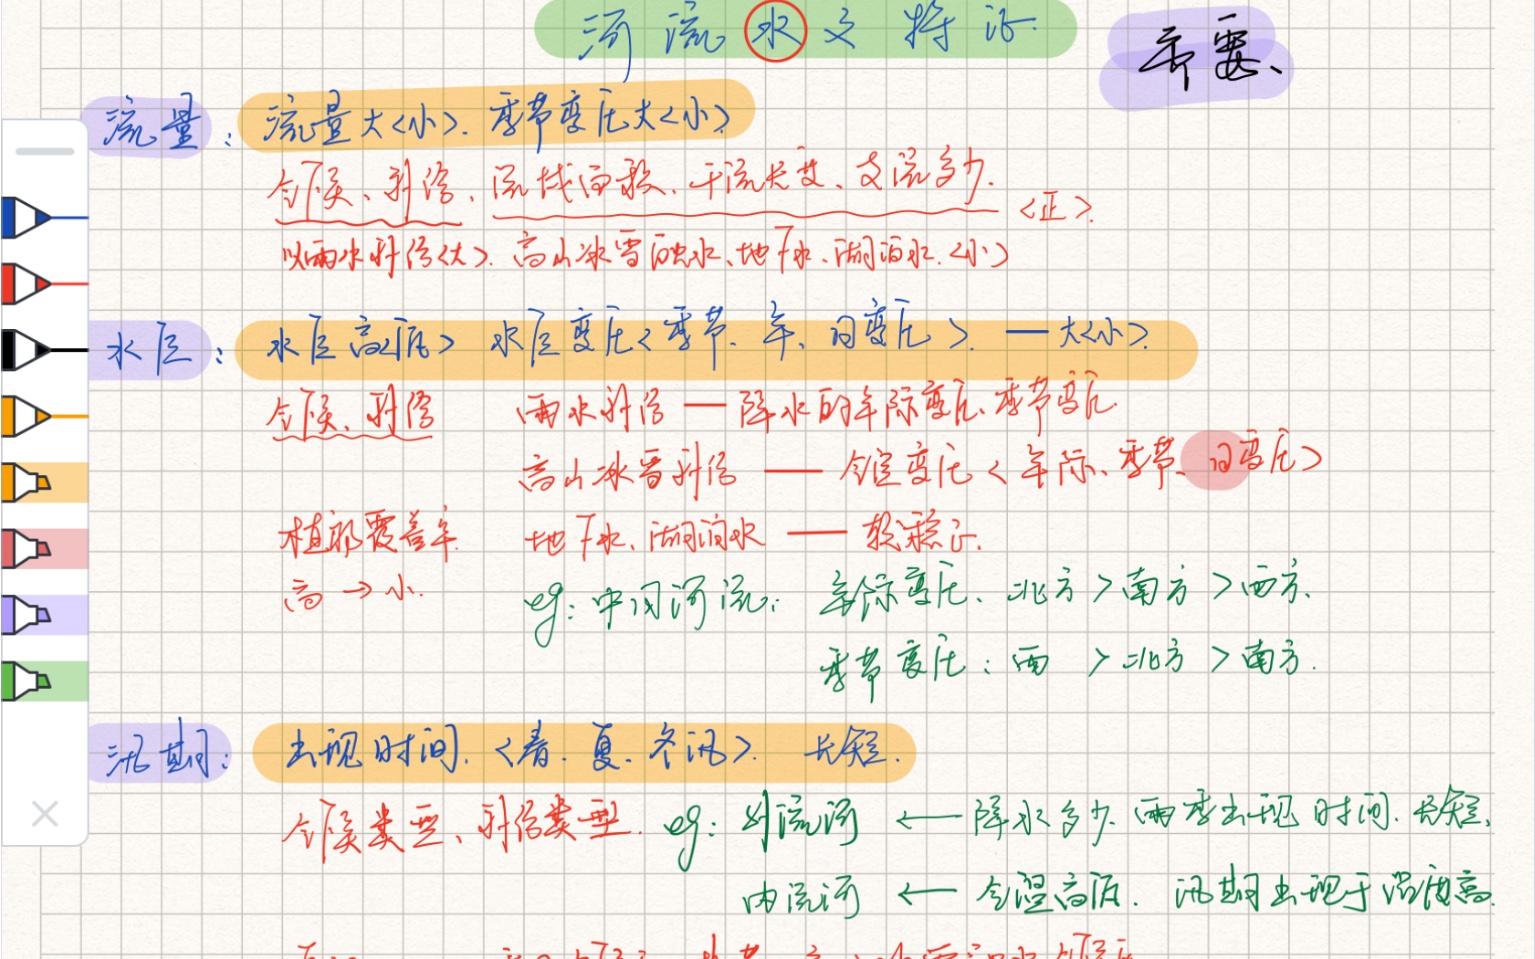 河流水文特征
重要、
流量：流量大<小>.季节变化大<小>
气候、补给、流域面积、干流长度、支流多少.<正>.
以雨水补给<大>.高山冰雪融水、地下水、湖泊水.<小>
水位：水位高<低> 水位变化<季节、年、日变化>.—大<小>.
气候、补给 雨水补给—降水的年际变化、季节变化
高山冰雪补给—气温变化<年际、季节、日变化>
植被覆盖率 地下水、湖泊水—较稳定.
高→小. eg:中国河流: 年际变化、北方>南方>西方.
季节变化：西 >北方>南方.
汛期：出现时间.<春.夏.冬汛>. 长短.
气候类型、补给类型. eg: 外流河 ← 降水多少.雨季出现时间.长短.
内流河 ← 气温高低. 汛期出现于温度高.